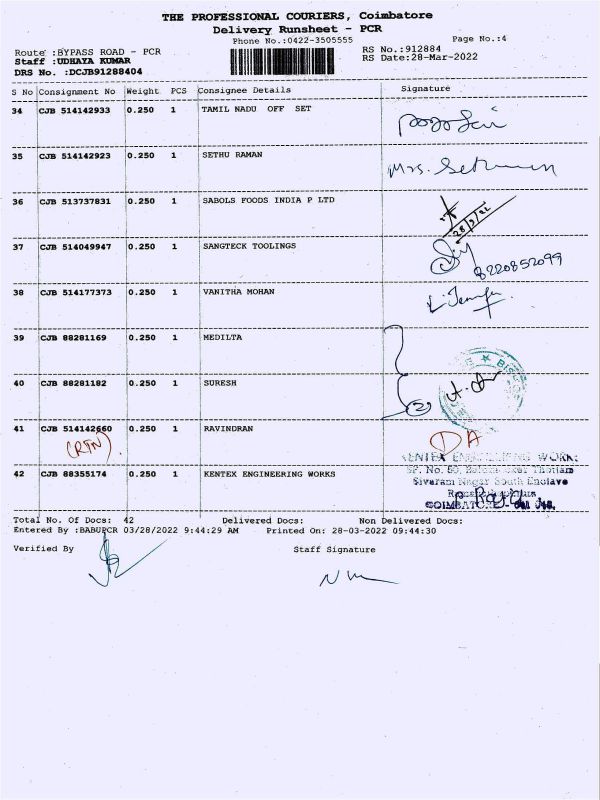 THE PROFESSIONAL COURIERS, Coimbatore
Delivery Runsheet - PCR
Phone No.:0422-3505555
Page No.:4
Route :BYPASS ROAD - PCR
RS No.:912884
Staff :UDHAYA KUMAR
RS Date:28-Mar-2022
DRS No. :DCJB91288404
S No Consignment No Weight PCS Consignee Details Signature
34 CJB 514142933 0.250 1 TAMIL NADU OFF SET
35 CJB 514142923 0.250 1 SETHU RAMAN
Mrs.
36 CJB 513737831 0.250 1 SABOLS FOODS INDIA P LTD
28/3/22
37 CJB 514049947 0.250 1 SANGTECK TOOLINGS
8220852099
38 CJB 514177373 0.250 1 VANITHA MOHAN
39 CJB 88281169 0.250 1 MEDILTA
40 CJB 88281182 0.250 1 SURESH
2
41 CJB 514142660 0.250 1 RAVINDRAN
(RTN) DA
KENTEX ENGINEERING WORKS
SF. No.
Sivaram Nagar South Enclave
42 CJB 88355174 0.250 1 KENTEX ENGINEERING WORKS
COIMBATORE
Total No. Of Docs: 42 Delivered Docs: Non Delivered Docs:
Entered By :BABUPCR 03/28/2022 9:44:29 AM Printed On: 28-03-2022 09:44:30
Verified By Staff Signature